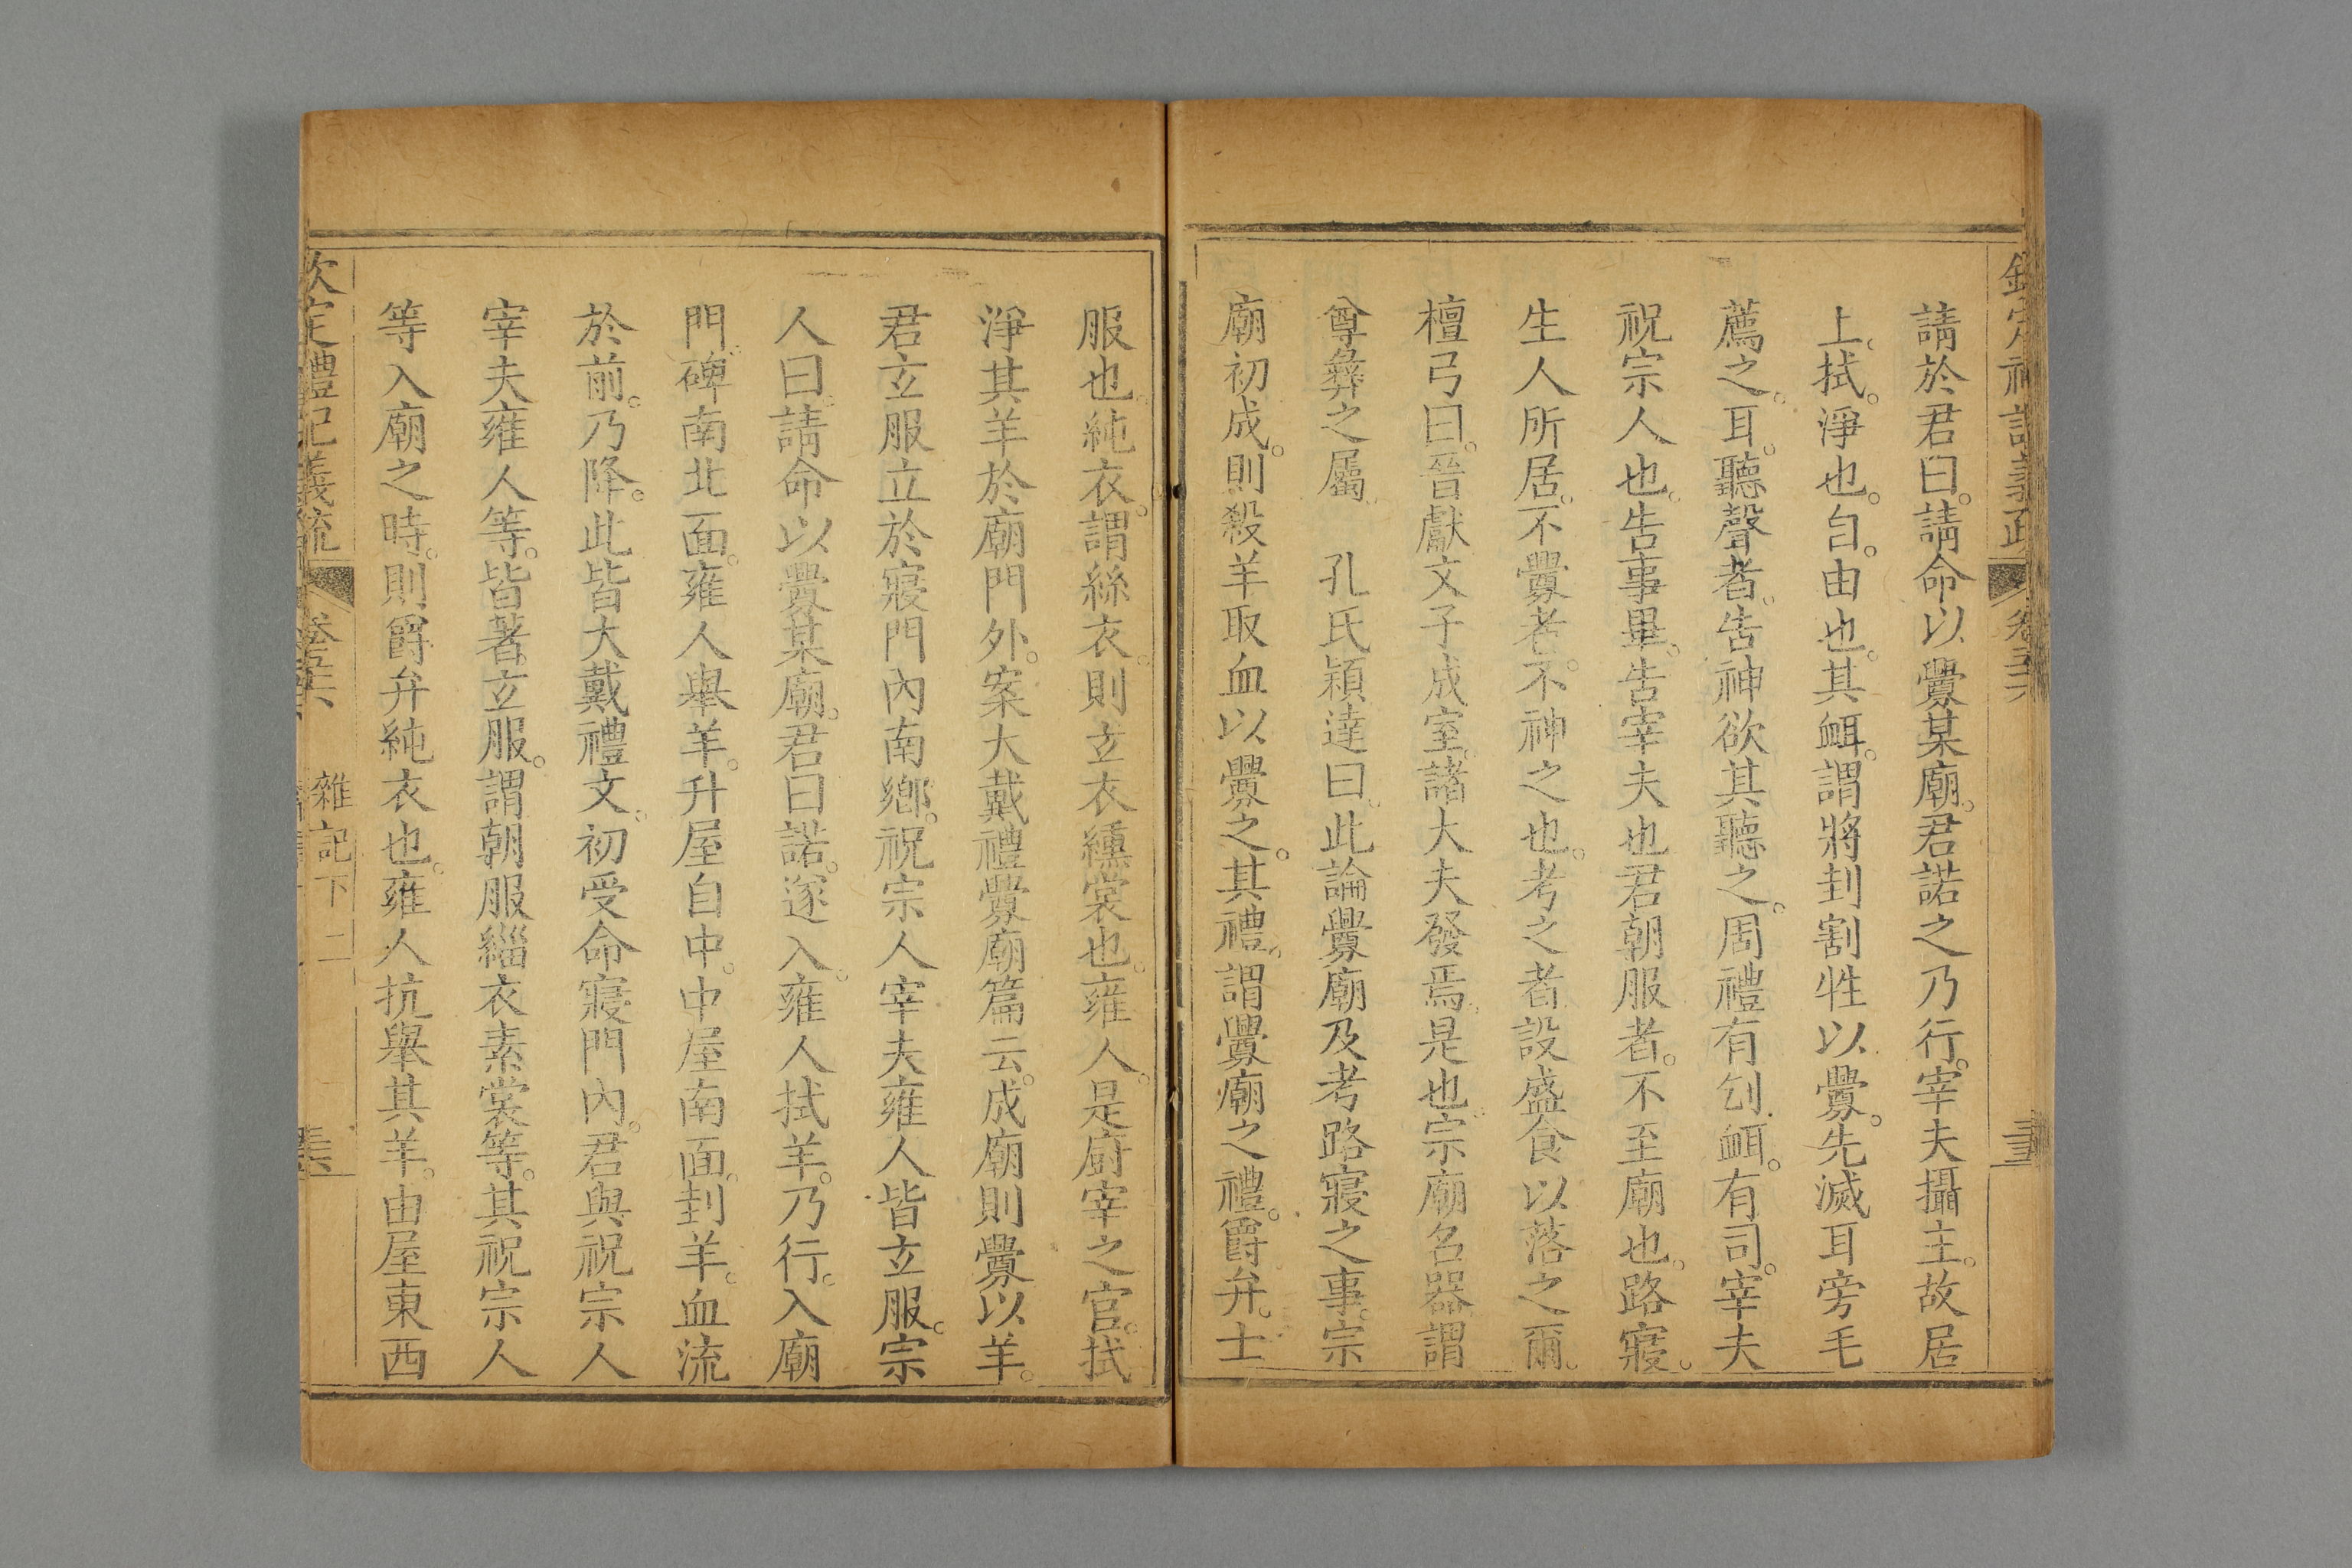 請於君曰。請命以釁某廟。君諾之乃行。宰夫攝主。故居
上。拭。淨也。自。由也。其衈。謂將刲割牲以釁。先滅耳旁毛
薦之。耳。聽聲者。告神欲其聽之。周禮有刉衈。有司。宰夫
祝宗人也。告事畢。告宰夫也君朝服者。不至廟也。路寢。
生人所居。不釁者。不神之也。考之者設盛食以落之爾。
檀弓曰。晉獻文子成室。諸大夫發焉。是也。宗廟名器謂
尊彝之屬 孔氏穎達曰。此論釁廟及考路寢之事。宗
廟初成。則殺羊取血以釁之。其禮。謂釁廟之禮。爵弁。士
服也。純衣。謂絲衣。則玄衣纁裳也。雍人。是廚宰之官。拭
淨其羊於廟門外。案大戴禮釁廟篇云。成廟則釁以羊。
君玄服立於寢門內南鄉。祝宗人宰夫雍人皆玄服。宗
人曰。請命以釁某廟。君曰諾。遂入。雍人拭羊。乃行。入廟
門。碑南北面。雍人舉羊。升屋自中。中屋南面。刲羊。血流
於前。乃降。此皆大戴禮文。初受命寢門內。君與祝宗人
宰夫雍人等。皆著玄服。謂朝服緇衣素裳等。其祝宗人
等入廟之時。則爵弁純衣也。雍人抗舉其羊。由屋東西
欽定禮記義疏 卷五十六 雜記下二